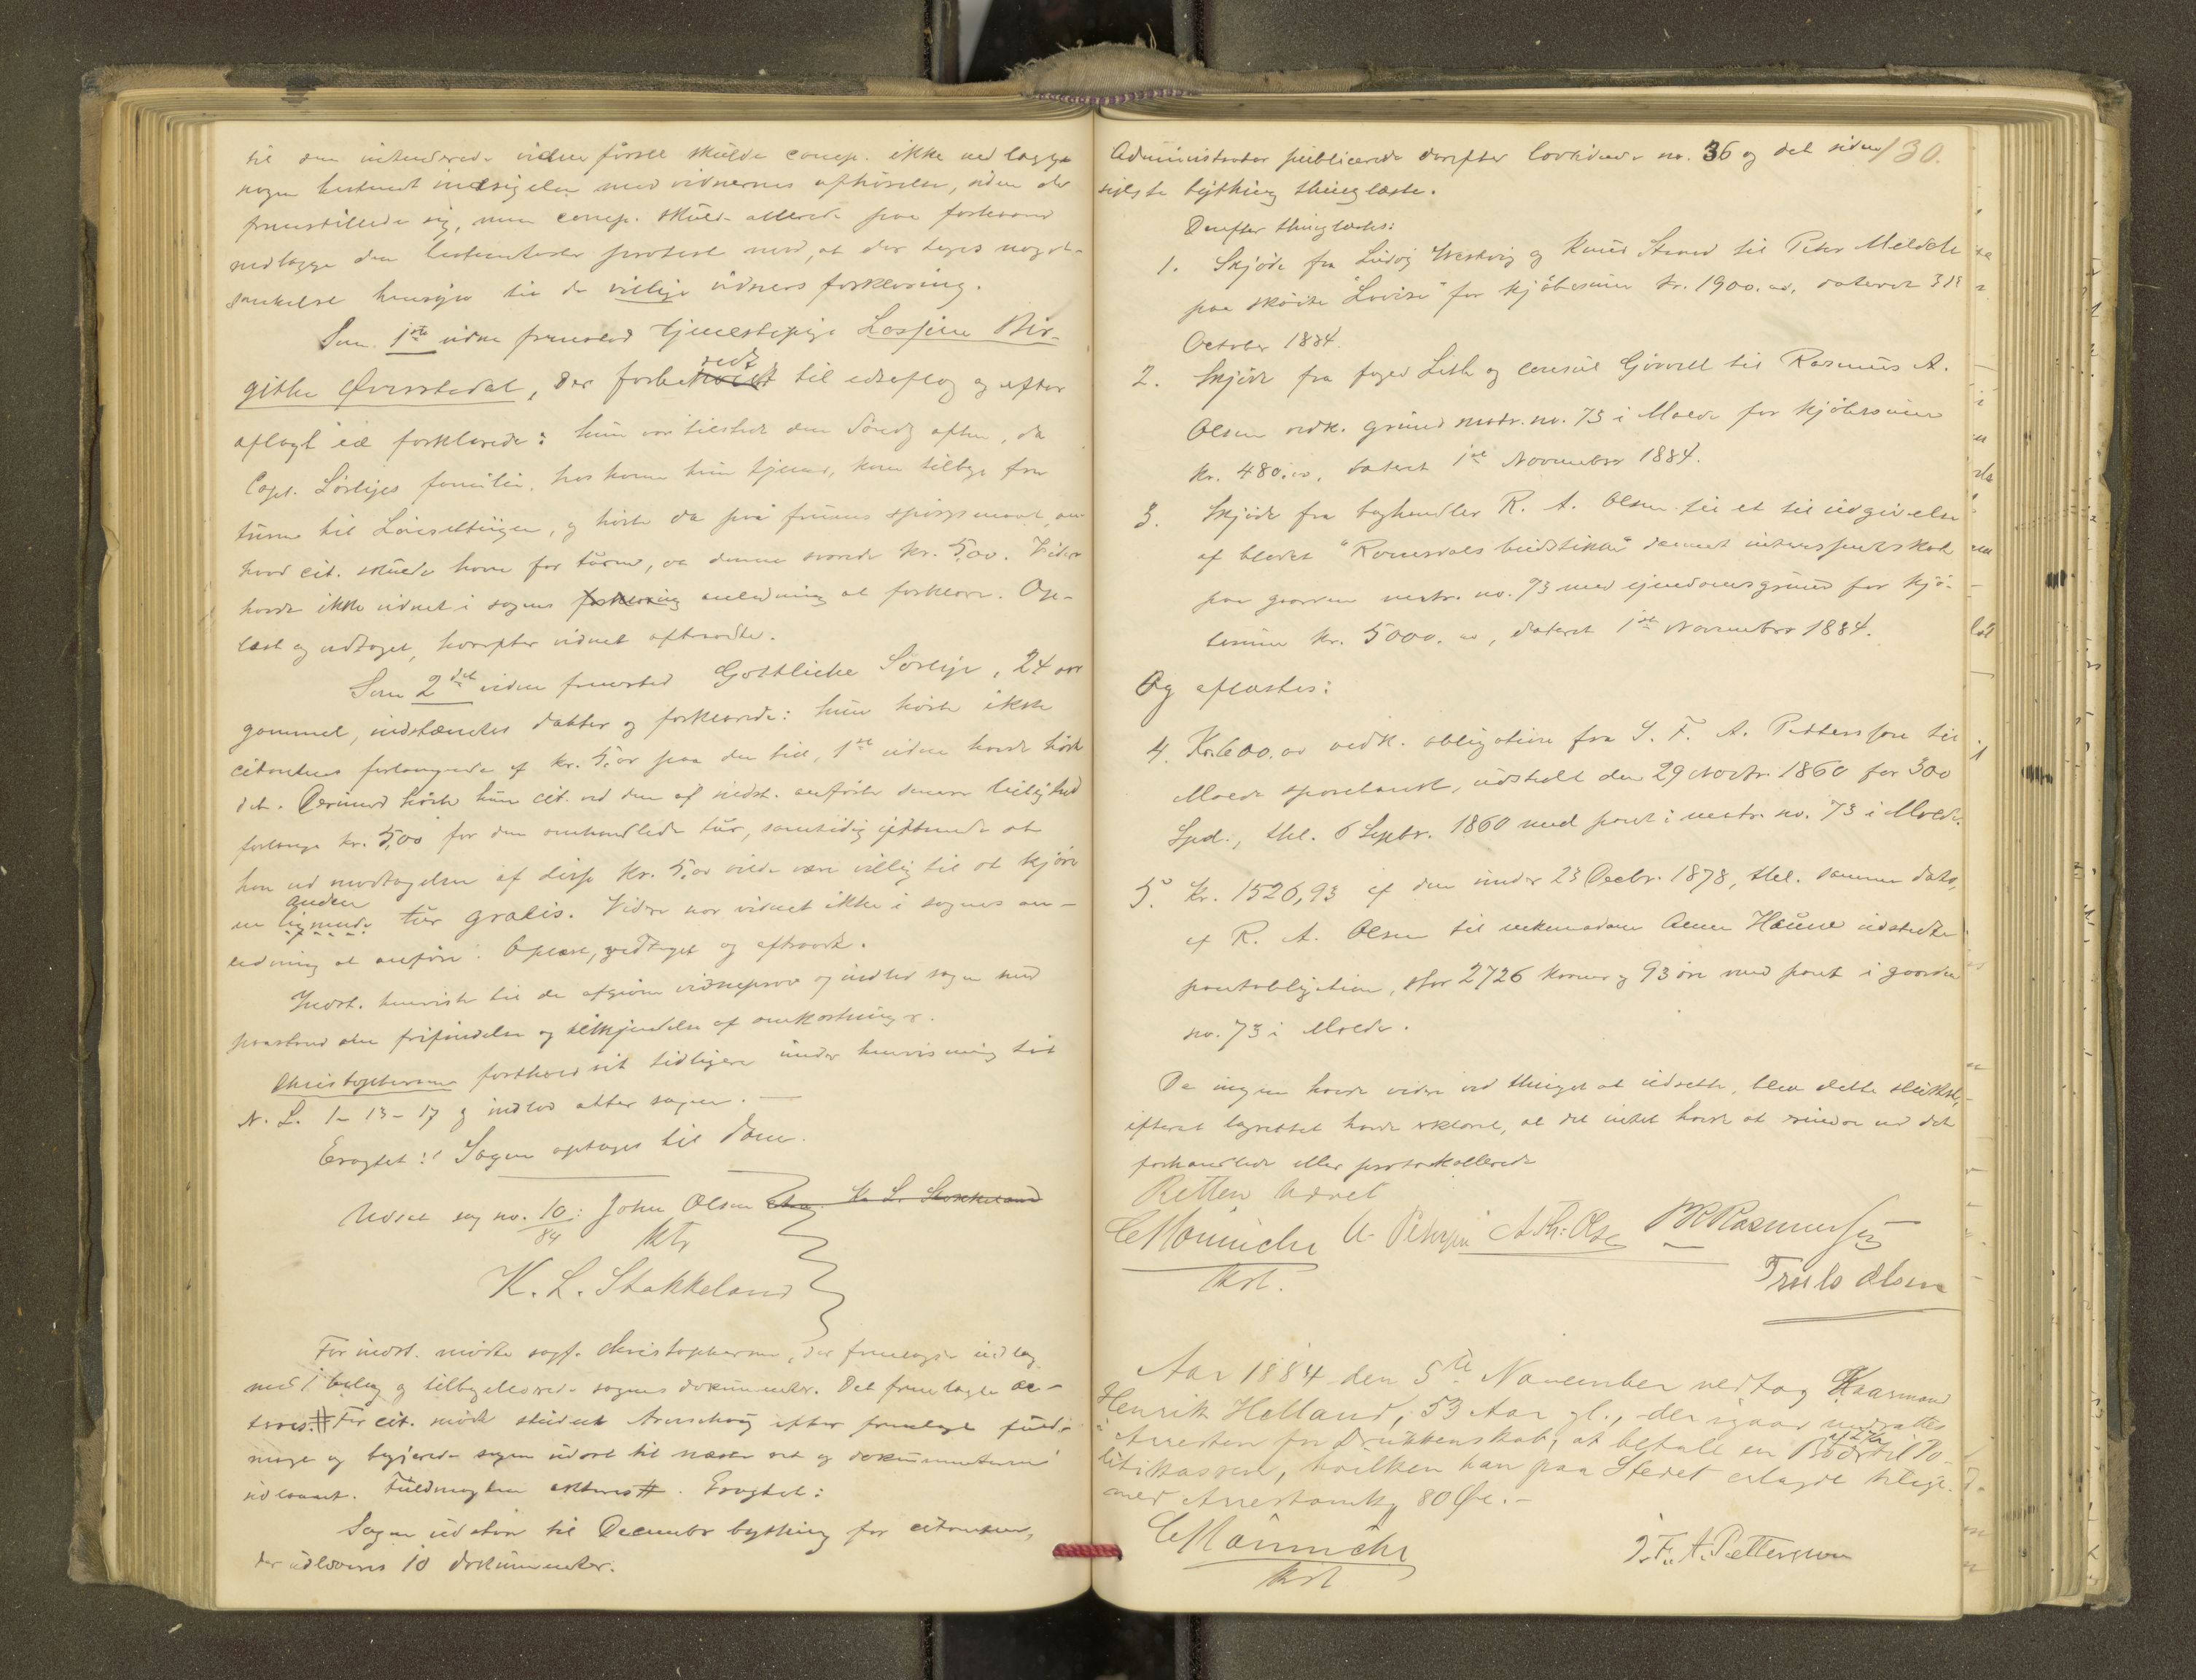 til den intenderede vidneførsel skulde comp. ikke nedlægge
nogen bestemt indsigelse mod vidnernes afhørelse, siden de
fremstillede sig, men comp. skulde allerede paa forhaand
nedlægge den bestemteste protest mod, at der toges noget
hensyn til de villige vidners forklaring.
Som 1ste vidne fremstod tjenestepige Lossine Bir-
githe Øverstedal, der forberedt til edsaflæg og efter
aflagt ed forklarede: hun var tilstede den Søndag aften, da
Capt. Sørliges familie, hos hvem hun tjener, kom tilbage fra
turen til , og hørte da paa fruens spørgsmaal om
hvad cit. skulde have for turen, at denne svarede kr. 5,00. Videre
havde ikke vidnet i sagens forklaring anledning at forklare. Op-
læst og vedtaget, hvorefter vidnet aftraadte.
Som 2det vidne fremstod Gottliebe Sørlige, 24 aar
gammel, indstævntes datter og forklarede: hun hørte ikke
citantens forlangende af kr. 5,00 paa den tid, 1ste vidne havde hørt
det. Derimod hørte hun cit. ved den af indst. anførte senere leilighed
forlange kr. 5,00 for den omhandlede tur, samtidig ytrende at
han ved modtagelsen af disse kr. 5,00 vilde være villig til at kjøre
en lignende anden tur gratis. Videre har vidnet ikke i sagens an-
ledning at anføre. Oplæst, vedtaget og aftraadt.
Indst. henviste til de afgivne vidneprov og indlod sagen med
paastand om frifindelse og tilkjendelse af omkostninger.
Christophersen fastholdt sit tidligere under henvisning til
N. L. 1-13-17 og indlod atter sagen. —
Eragtet: Sagen optages til dom.
Udsat sag no. 10/84: John Olsen K. L. Stakkeland
ktr
K. L. Stakkeland
For indst. mødte sagf. Christophersen, der fremlagde indlæg
med 1 bilag og tilbageleverede sagens dokumenter. Det fremlagte ac-
teres. # For cit. mødte student efter fremlagt fuld-
magt og begjærede sagen udsat til næste ret og dokumenterne
udlaant. Fuldmagten akteres #. Eragtet:
Sagen udstaar til December bything for citanten,
der udleveres 10 dokumenter.
130.
Administrator publicerede derefter lovtidende no. 36 og det siden
sidste bything thinglæste.
Derefter thinglæstes:
1. Skjøde fra Ludvig Westvig og Knud til Peter Meldele
paa skøite "Lovise" for kjøbesum kr. 1900.00, dateret 31te
October 1884.
2. Skjøde fra foged Leth og consul Gjørvell til Rasmus A.
Olsen vedk. grund matr. no. 73 i Molde for kjøbesum
kr. 480.00, dateret 1ste November 1884.
3. Skjøde fra boghandler R. A. Olsen til et til udgivelse
af bladet "Romsdals budstikke" dannet interessentskab
paa gaarden matr. no. 73 med eiendomsgrund for kjø-
besum kr. 5000.00, dateret 1ste November 1884.
Og aflæstes:
4. Kr. 600.00 vedk. obligation fra J. F. A. Pettersson til
Molde sparebank, udstedt den 29 1860 for 300
Spd., thl. 6 Septbr. 1860 med pant i matr. no. 73 i Molde.
5. Kr. 1526,93 af den under 23 Decbr. 1878, thl. samme dato,
af R. A. Olsen til enkemadam Anne Haune udstedte
pantobligation, stor 2726 kroner og 93 øre med pant i gaarden
no. 73 i Molde.
Da ingen havde videre ved thinget at udrette, blev dette sluttet,
efterat lagrettet havde erklæret, at det intet havde at erindre ved det
forhandlede eller protokollerede
Retten hævet
C Mönniche A. Th: Olsen P R Rasmussen
kst.
Truls Olsen
Aar 1884 den 5te November vedtog Kaarmand
Henrik Helland, 53 Aar gl., der igaar indsattes
i Arresten for Drukkenskab, at betale en Bod af 2 Kr til Po-
litikassen, hvilken han paa Stedet erlagde tillige-
med Arrestomkg 80 Øre. -
C Mönniche
kst
J. F. A. Pettersson